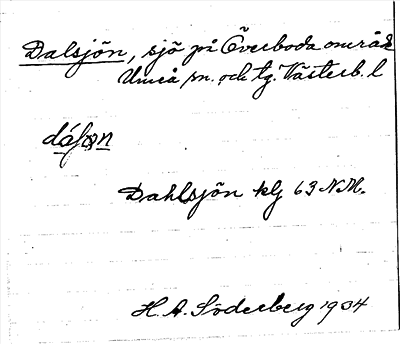 Dalsjön, sjö på Överboda område
Umeå sn. och tg. Västerb. l
Dahlsjön klj 63 N.M.
H. A. Söderberg 1934